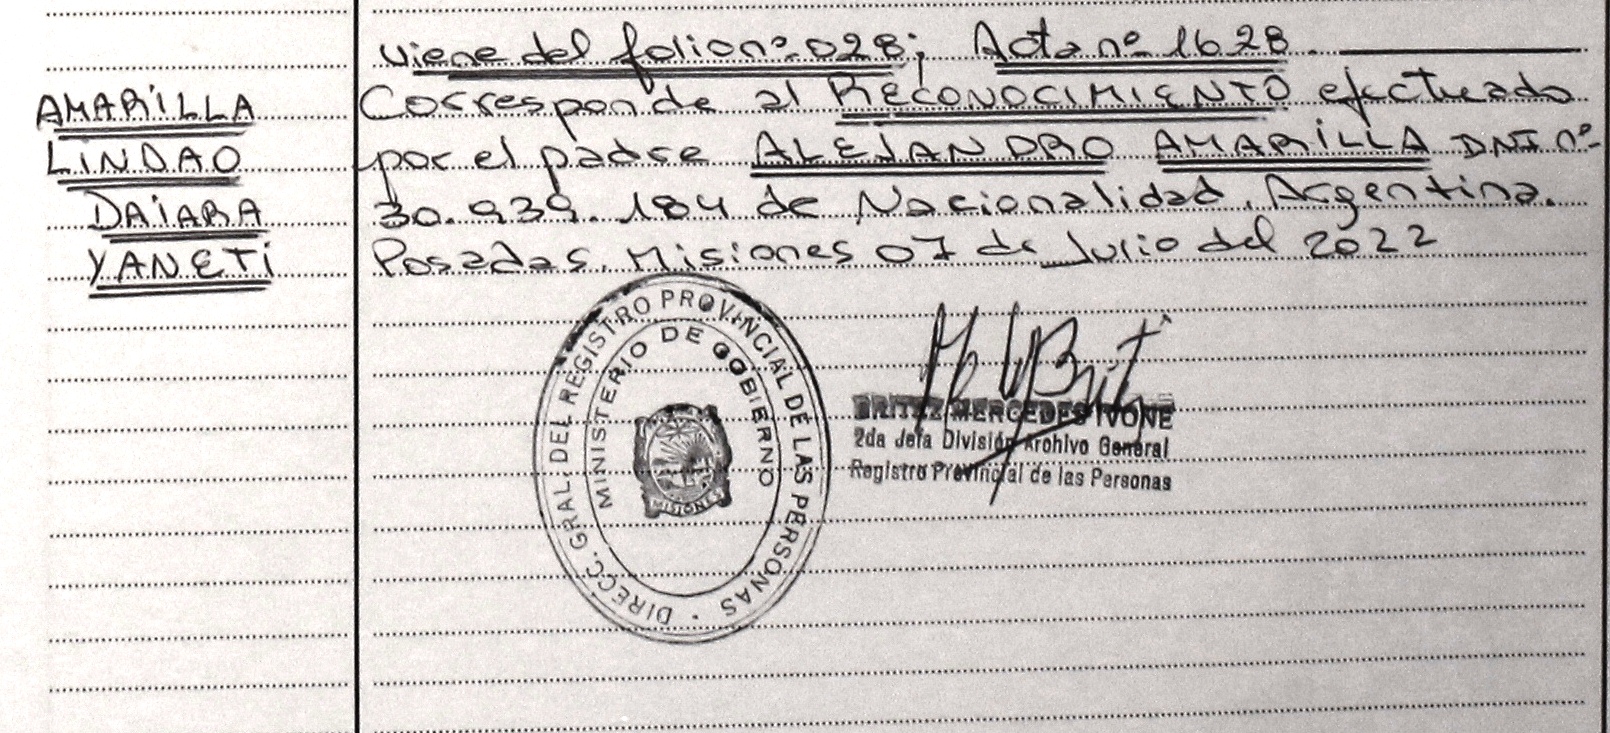 viene del folio nº 028; Acta nº 1628.
AMARiLLA
LiNDAO
DAiARA
YANETi
Corresponde al RECONOCIMIENTO efectuado
por el padre ALEJANDRO AMARiLLA DNI nº
30.939.184 de Nacionalidad Argentina.
Posadas, Misiones 07 de Julio del 2022
DIRECC. GRAL. DEL REGISTRO PROVINCIAL DE LAS PERSONAS
MINISTERIO DE GOBIERNO
MISIONES
BRITEZ MERCEDES IVONE
2da Jefa División Archivo General
Registro Provincial de las Personas